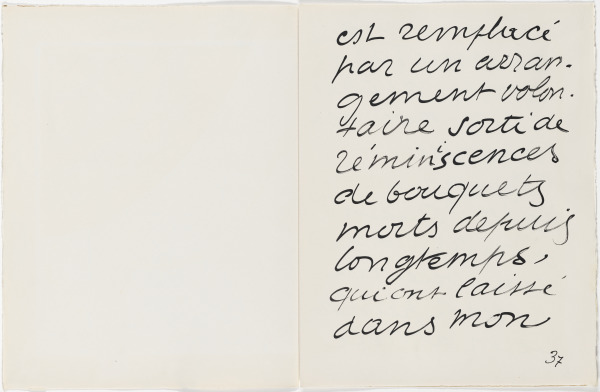 est remplacé
par un arran-
gement volon-
taire sorti de
réminiscences
de bouquets
morts depuis
longtemps,
qui ont laissé
dans mon
37